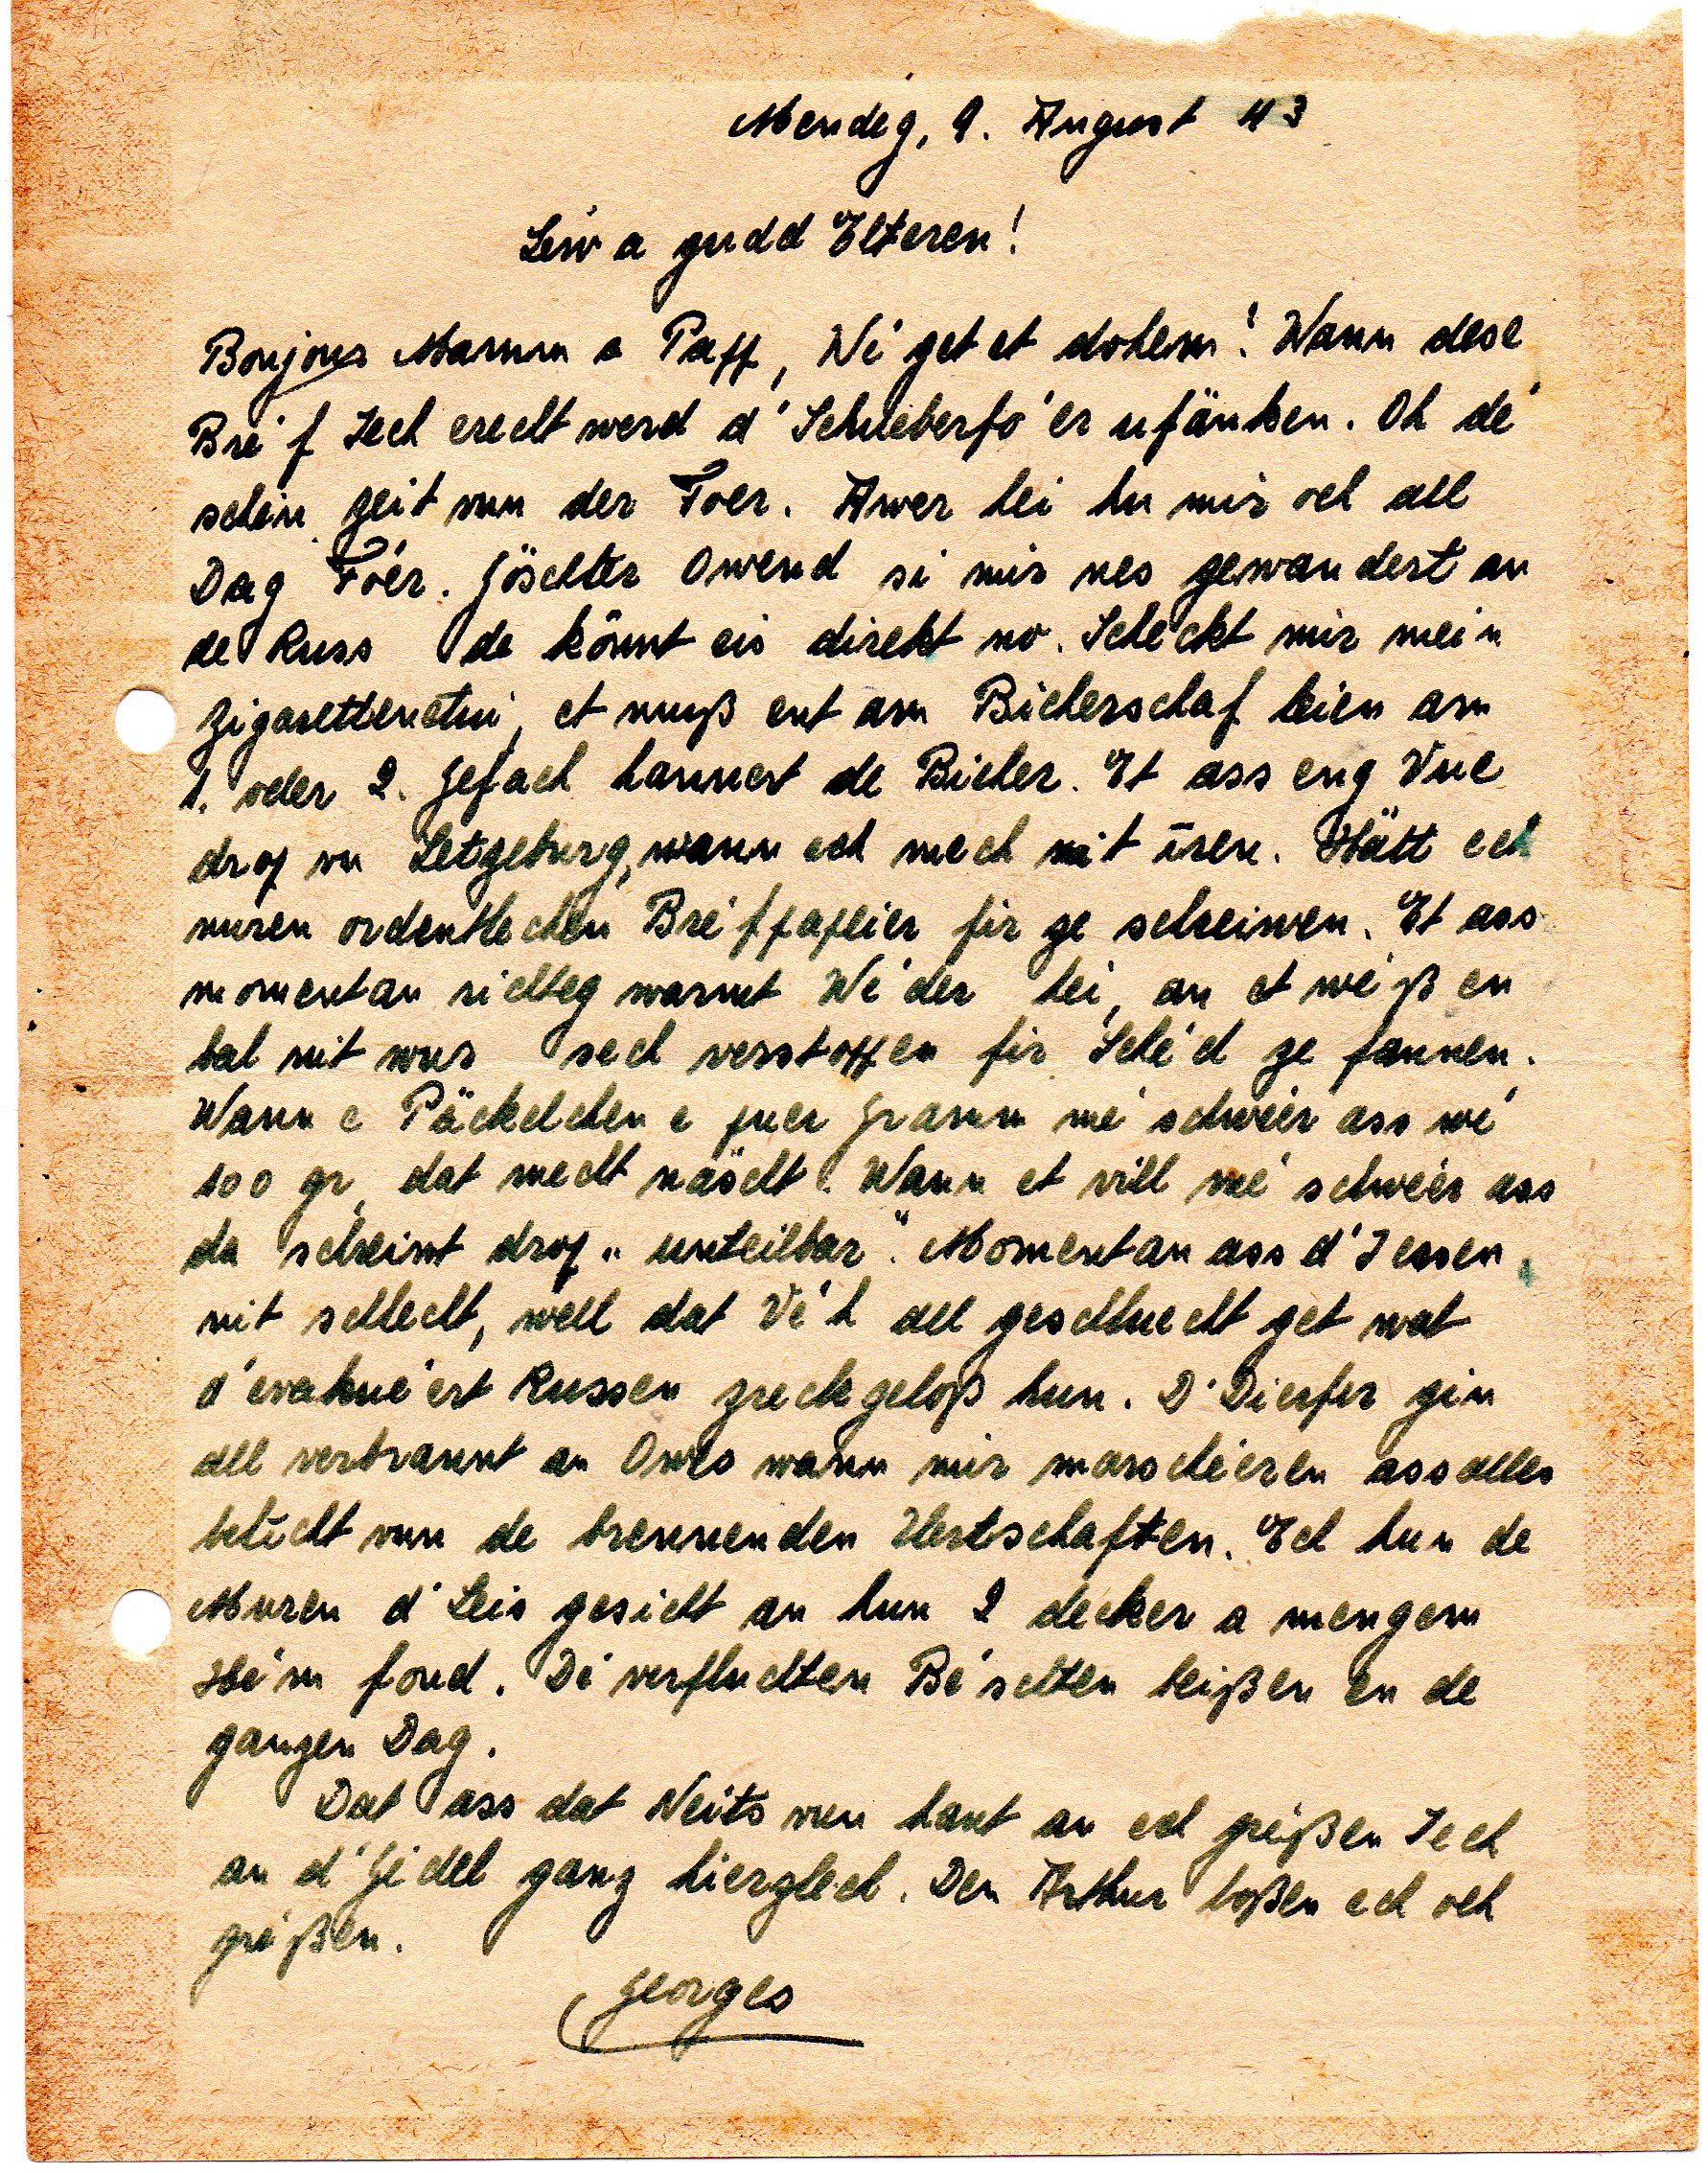 Mendeg, 9. August 43
Léiw a gudd Elteren!
Boujour Mamm a Papp, Wi' get et dohem! Wann dese
Bre'f Iech erecht werd d' Schueberfo'er ufänken. Oh de'
schéin Zeit vun der Foer. Awer hei hu mir och all
Dag Foér. Göschter Owend si mir nes gewandert an
de Russ de könnt eis direkt no. Scheckt mir mein
Zigarettenetui, et muß ent am Bicherschaf leien am
1. oder 2. Gefach hannert de Bicher. Et ass eng Vue
drop vu Letzeburg, wann ech mech nit iren. Hätt ech
nuren ordentlechen Bréifpapeier fir ze schreiwen. Et ass
momentan richteg warmt We'der hei, an et we'ß en
bal nit wur sech verstoppen fir Sche'd ze fannen.
Wann e Päckelchen e puer Gramm mé schwéier ass wé
100 gr, dat mecht näscht. Wann et vill mé schwéier ass
da schreiwt drop „unteilbar". Momentan ass d'Iessen
nit schlecht, well dat Vé'h all geschluecht get wat
d'evakue'ert Russen zreckgeloß hun. D'Dierfer gin
all verbrannt an Owes wann mir marschéieren ass alles
belicht vun de brennenden Uertschaften. Ech hun de
Muren d'Leis gesicht an hun 2 decker a mengem
Hé'm fond. Di verfluchten Bé'schten beißen en de
ganzen Dag.
Dat ass dat Neits vun haut an ech gréißen Iech
an d'Gidel ganz hierzlech. Den Arthur loßen ech och
gré'ßen.
Georges